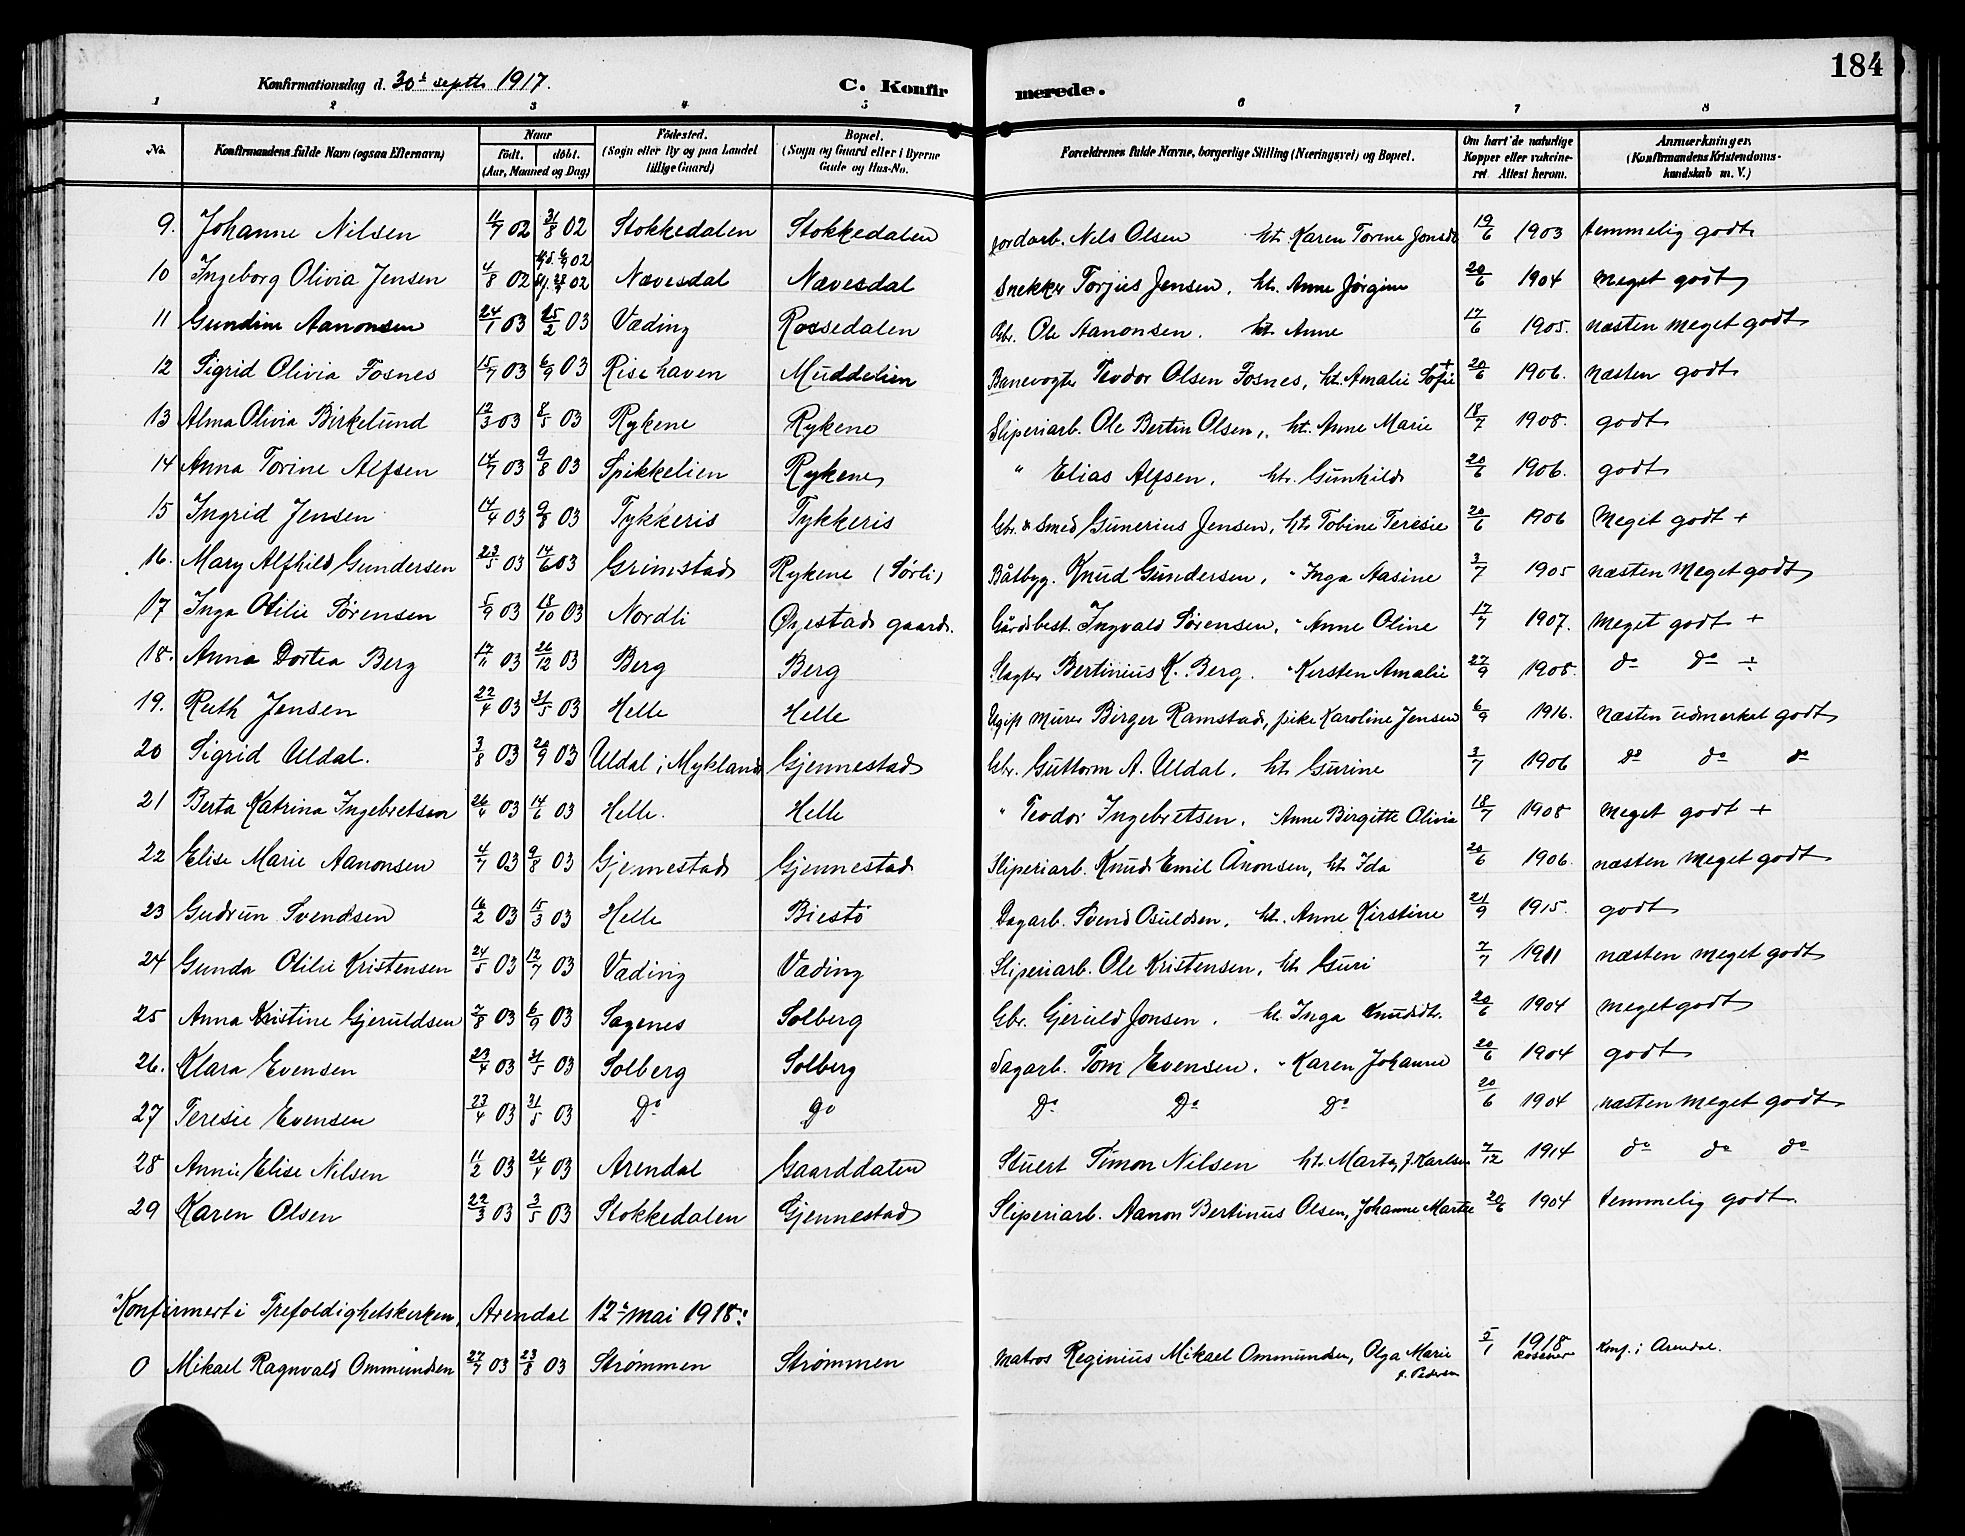 184
Konfirmationsdag d. 30te septb 1917. C. Konfir merede.
1 2 3 4 5 6 7 8
No. Konfirmandens fulde Navn (ogsaa Efternavn) Naar født. døbt. (Aar, Maaned og Dag) Fødested. (Sogn eller By og paa Landet tillige Gaard) Bopæl. (Sogn og Gaard eller i Byerne Gade og Hus-No. Forældrenes fulde Navne, borgerlige Stilling (Næringsvei) og Bopæl. Om havt de naturlige Kopper eller vakcineret Attest herom. Anmærkninger. (Konfirmandens Kristendomskundskab m. V.)
9. Johanne Nilsen 11/7 02 31/8 02 Stokkedalen Stokkedalen Jordarb. Nels Olsen ht. Karen Torine Jonsdt 19/6 1903 temmelig godt
10 Ingeborg Olivia Jensen 4/8 02 02 Nævesdal Nævesdal Snekker Torjus Jensen, ht. Anne Jørgine 20/6 1904 meget godt
11 Gundine Aanonsen 24/1 03 25/2 03 Væding Rossedalen Gbr. Ole Aanonsen. ht. Anne 17/6 1905. næsten meget godt
12 Sigrid Olivia Fosnes 15/7 03 6/9 03 Risehaven Muddelien Banevogter Teodor Olsen Fosnes, ht. Amalie Sofie + 20/6 1906. næsten godt
13 Alma Olivia Birkelund 12/3 03 8/5 03 Rykene Rykene Sliperiarb. Ole Bertin Olsen, ht. Anne Marie 18/7 1908. godt
14 Anna Torine Alfsen 14/7 03 9/8 03 Spikkelien Rykene " Elias Alfsen, ht. Gunhild 20/6 1906. godt
15 Ingrid Jensen 17/4 03 9/8 03 Tykkeris Tykkeris Gbr. & Smed Gunerius Jensen, ht Tobine Teresie 20/6 1906 Meget godt +
16. Mary Alfhild Gundersen 23/5 03 14/6 03 Grimestad Rykene (Sørli) Båtbyg. Knud Gundersen, " Inga Nasine 3/7 1905 næsten meget godt
17 Inga Otilie Sørensen 5/9 03 18/10 03 Nordli Øyestad gaard. Gårdsbest. Ingvald Sørensen, " Anne Oline 17/7 1907. meget godt +
18. Anna Dortea Berg 17/11 03 26/12 03 Berg Berg Slagter Bertinius K. Berg. " Kirsten Amalie 27/9 1908. do do ÷
19. Ruth Jensen 22/4 03 31/5 03 Helle Helle Ugift murer Birger Ramstad, pike Karoline Jensen 6/9 1916. næsten udmerket godt
20 Sigrid Uldal. 3/8 03 20/9 03 Uldal i Mykland Gjennestad Gbr. Guttorm A. Uldal. ht Gurine 3/7 1906 do do do
21 Berta Katrina Ingebretsen 26/4 03 14/6 03 Helle. Helle " Teodor Ingebretsen, " Anne Birgitte Olivia 18/7 1908 meget godt +
22 Elise Marie Aanonsen 4/7 03 9/8 03 Gjennestad Gjennestad Sliperiarb. Knud Emil Ånonsen, ht Ida 20/6 1906. næsten meget godt
23 Gudrun Svendsen 16/2 03 15/3 03 Helle Biestø Dagarb. Svend Osuldsen, ht. Anne Kirstine 21/9 1915. godt
24 Gunda Otilie Kristensen 24/5 03 12/7 03 Væding Væding Sliperiarb. Ole Kristensen, ht Guri 7/7 1911 næsten meget godt
25 Anna Kristine Gjeruldsen 2/8 03 6/9 03 Sagenes Solberg Gbr. Gjeruld Jonsen. ht. Inga Knudsdt. 20/6 1904 meget godt
26. Klara Evensen 23/4 03 31/5 03 Solberg Solberg Sagarb. Tom Evensen. " Karen Johanne 20/6 1904 godt
27 Teresie Evensen 23/4 03 31/5 03 Do Do Do Do Do 20/6 1904 næsten meget godt
28 Annie Elise Nilsen 11/2 03 26/4 03 Arendal Gaarddalen Stuert Simon Nilsen ht. Marta f. Karlsen 7/12 1914 do do do
29 Karen Olsen 22/3 03 3/5 03 Stokkedalen Gjennestad Sliperiarb. Aanon Bertinus Olsen, Johanne Marte 20/6 1904 temmelig godt.
Konfirmert i Trefoldighetskirken, Arendal 12te mai 1918:
0 Mikael Ragnvald Ommundsen 27/7 03 23/8 03 Strømmen Strømmen matros Reginius Mikael Ommundsen, Olga Marie f. Pedersen 5/1 1918 Konf. i Arendal.